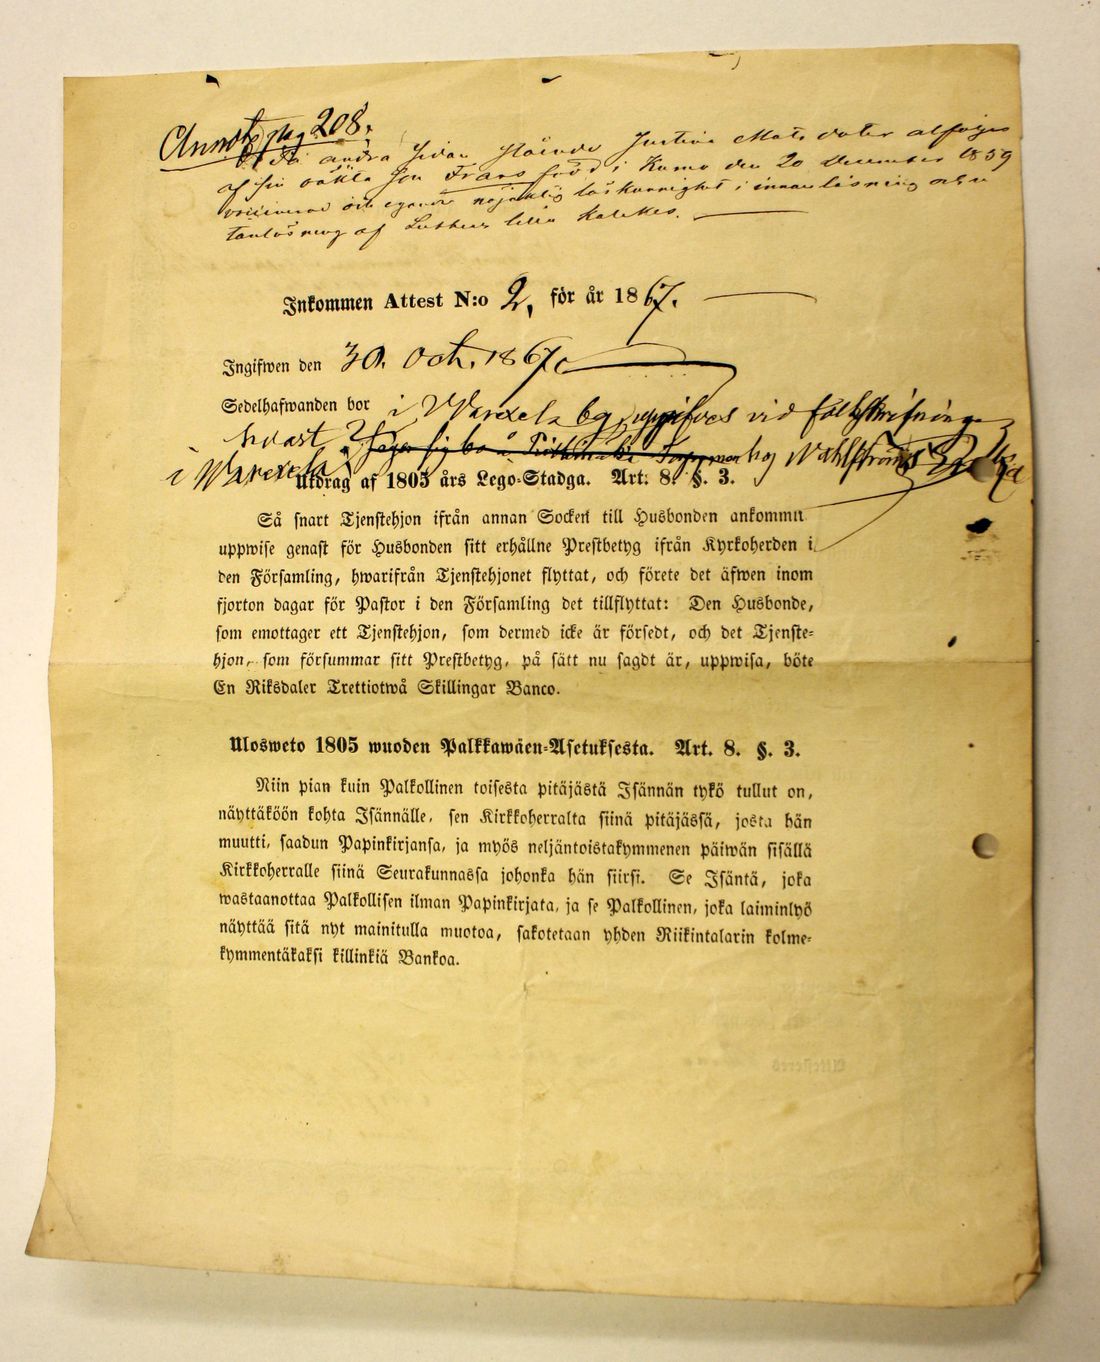 Annot. pag 208.
På andra sidan stående Justina Matsdotter åtföljes
af sin oäkta son Frans född i Kumo den 20 December 1859
vaccinerad och egande nöjaktig läskunnighet i innanläsning och
utanläsning af Luthers lilla Katekes.
Inkommen Attest N:o 2, för år 1867.
Ingifwen den 30. Oct. 1867.
Sedelhafwanden bor i Warexela by, uppgifves vid folkskrifninge
hvast säger sig bo å hos Wahlströms
i Warexela
Utdrag af 1805 års Lego-Stadga. Art. 8. §. 3.
Så snart Tjenstehjon ifrån annan Socken till Husbonden ankommit
uppwise genast för Husbonden sitt erhållne Prestbetyg ifrån Kyrkoherden i
den Församling, hwarifrån Tjenstehjonet flyttat, och förete det äfwen inom
fjorton dagar för Pastor i den Församling det tillflyttat: Den Husbonde,
som emottager ett Tjenstehjon, som dermed icke är försedt, och det Tjenste-
hjon, som försummar sitt Prestbetyg, på sätt nu sagdt är, uppwisa, böte
En Riksdaler Trettiotwå Skillingar Banco.
Ulosweto 1805 wuoden Palkkawäen-Asetuksesta. Art. 8. §. 3.
Niin pian kuin Palkollinen toisesta pitäjästä Isännän tykö tullut on,
näyttäköön kohta Isännälle, sen Kirkkoherralta siinä pitäjässä, josta hän
muutti, saadun Papinkirjansa, ja myös neljäntoistakymmenen päiwän sisällä
Kirkkoherralle siinä Seurakunnassa johonka hän siirsi. Se Isäntä, joka
wastaanottaa Palkollisen ilman Papinkirjata, ja se Palkollinen, joka laiminlyö
näyttää sitä nyt mainitulla muotoa, sakotetaan yhden Riikintalarin kolme-
kymmentäkaksi killinkiä Bankoa.